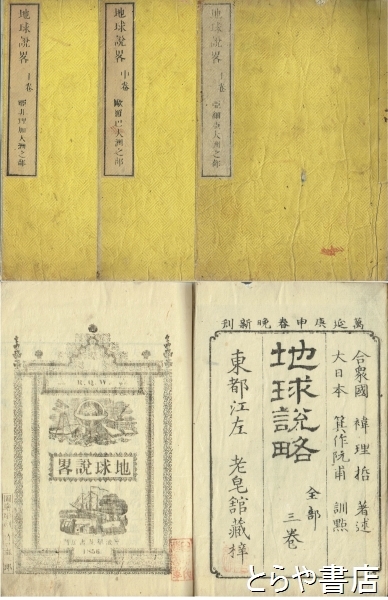 地球說畧 下卷
亞非理加大洲之部
地球說畧 中卷
歐羅巴大洲之部
地球說畧 上卷
亞細亞大洲之部
R.Q.W.
地球說畧
1856.
萬延庚申春晩新刻
合衆國 褘理哲 著述
大日本 箕作阮甫 訓點
地球說略 全部 三卷
東都江左 老皂館藏梓
とらや書店